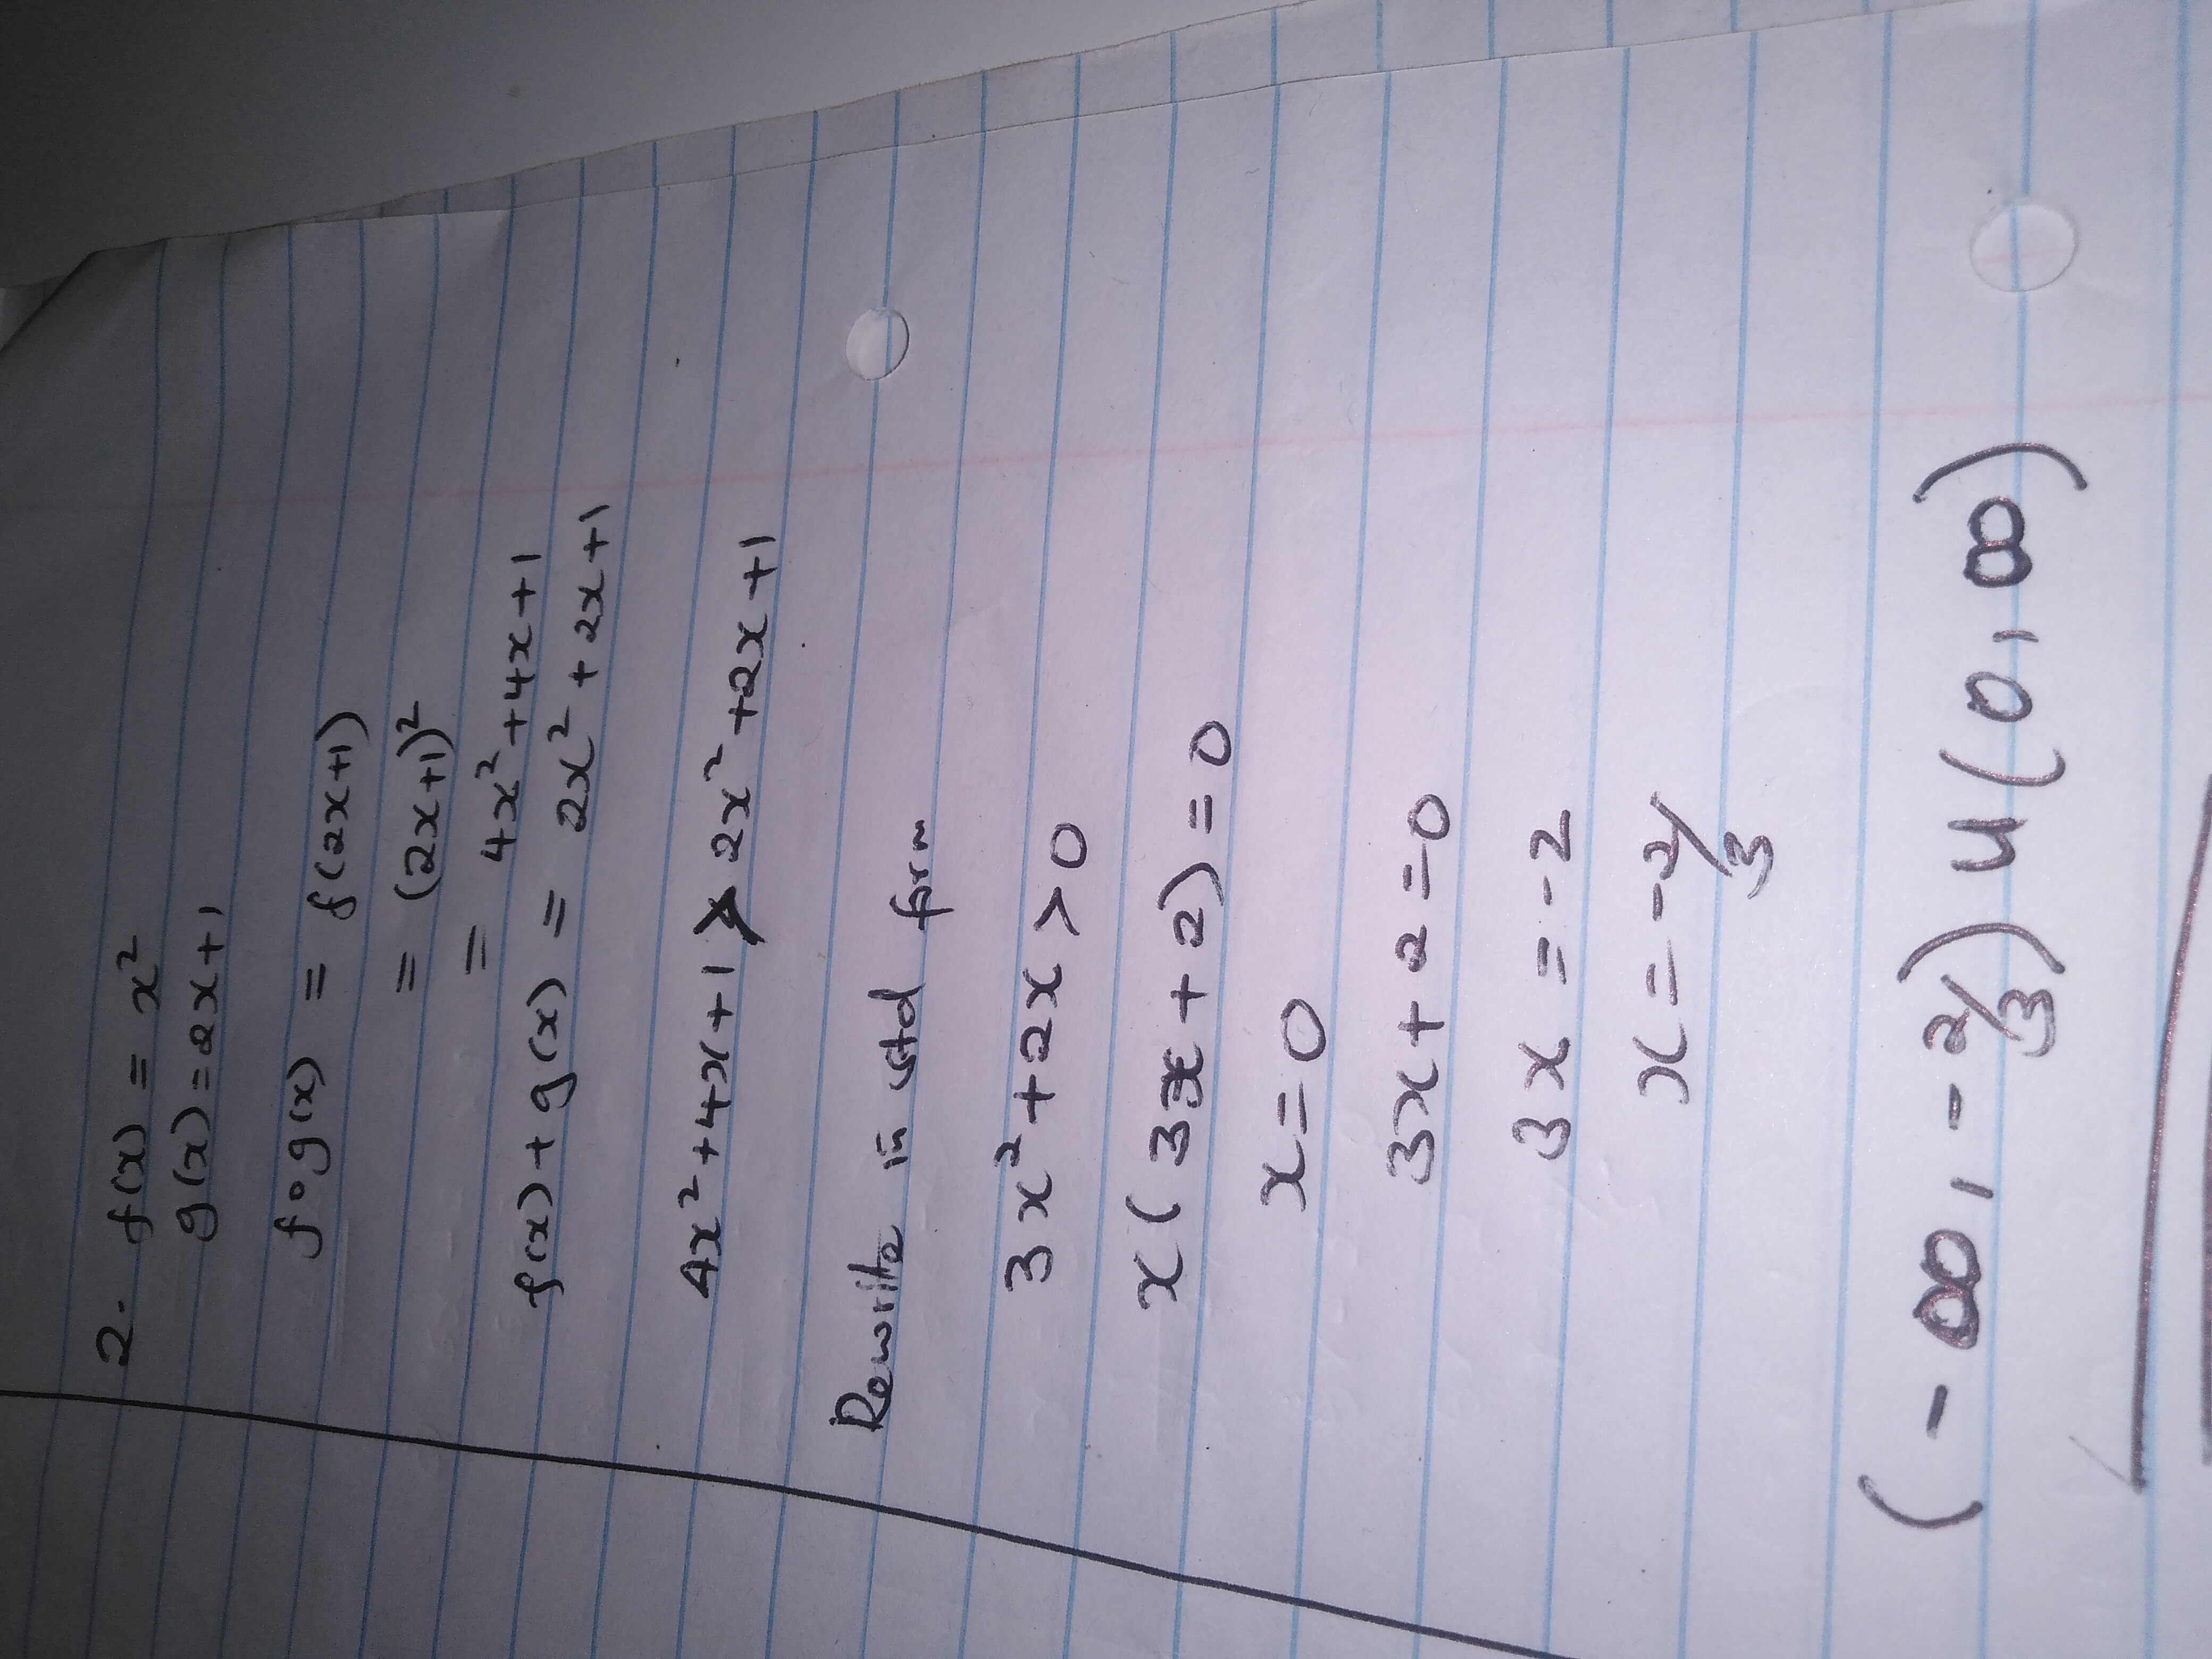 2. f(x) = x²
g(x) = 2x+1
f∘g(x) = f(2x+1)
= (2x+1)²
= 4x²+4x+1
f(x)+g(x) = 2x²+2x+1
4x²+4x+1 > 2x²+2x+1
Rewrite in std form
3x²+2x>0
x(3x+2)=0
x=0
3x+2=0
3x=-2
x=-2/3
(-∞,-2/3) U (0,∞)